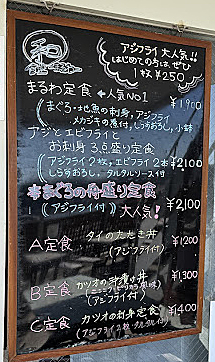 和
アジフライ 大人気!!
はじめての方は、ぜひ
1枚 ¥250
まるわ定食 ←人気NO1 ¥1900
(まぐろ・地魚の刺身、アジフライ
メカジキの煮付、しらすおろし、小鉢)
アジとエビフライと
お刺身 3点盛り定食
(アジフライ2枚、エビフライ2本 ¥2100
しらすおろし、タルタルソース付)
本まぐろの舟盛り定食
(アジフライ付) 大人気! ¥2,100
A定食 タイのたたき丼 ¥1200
(アジフライ付)
B定食 カツオの 丼 ¥1300
(アジフライ付)
C定食 カツオの刺身定食 ¥1400
(アジフライ2枚・タルタル付)